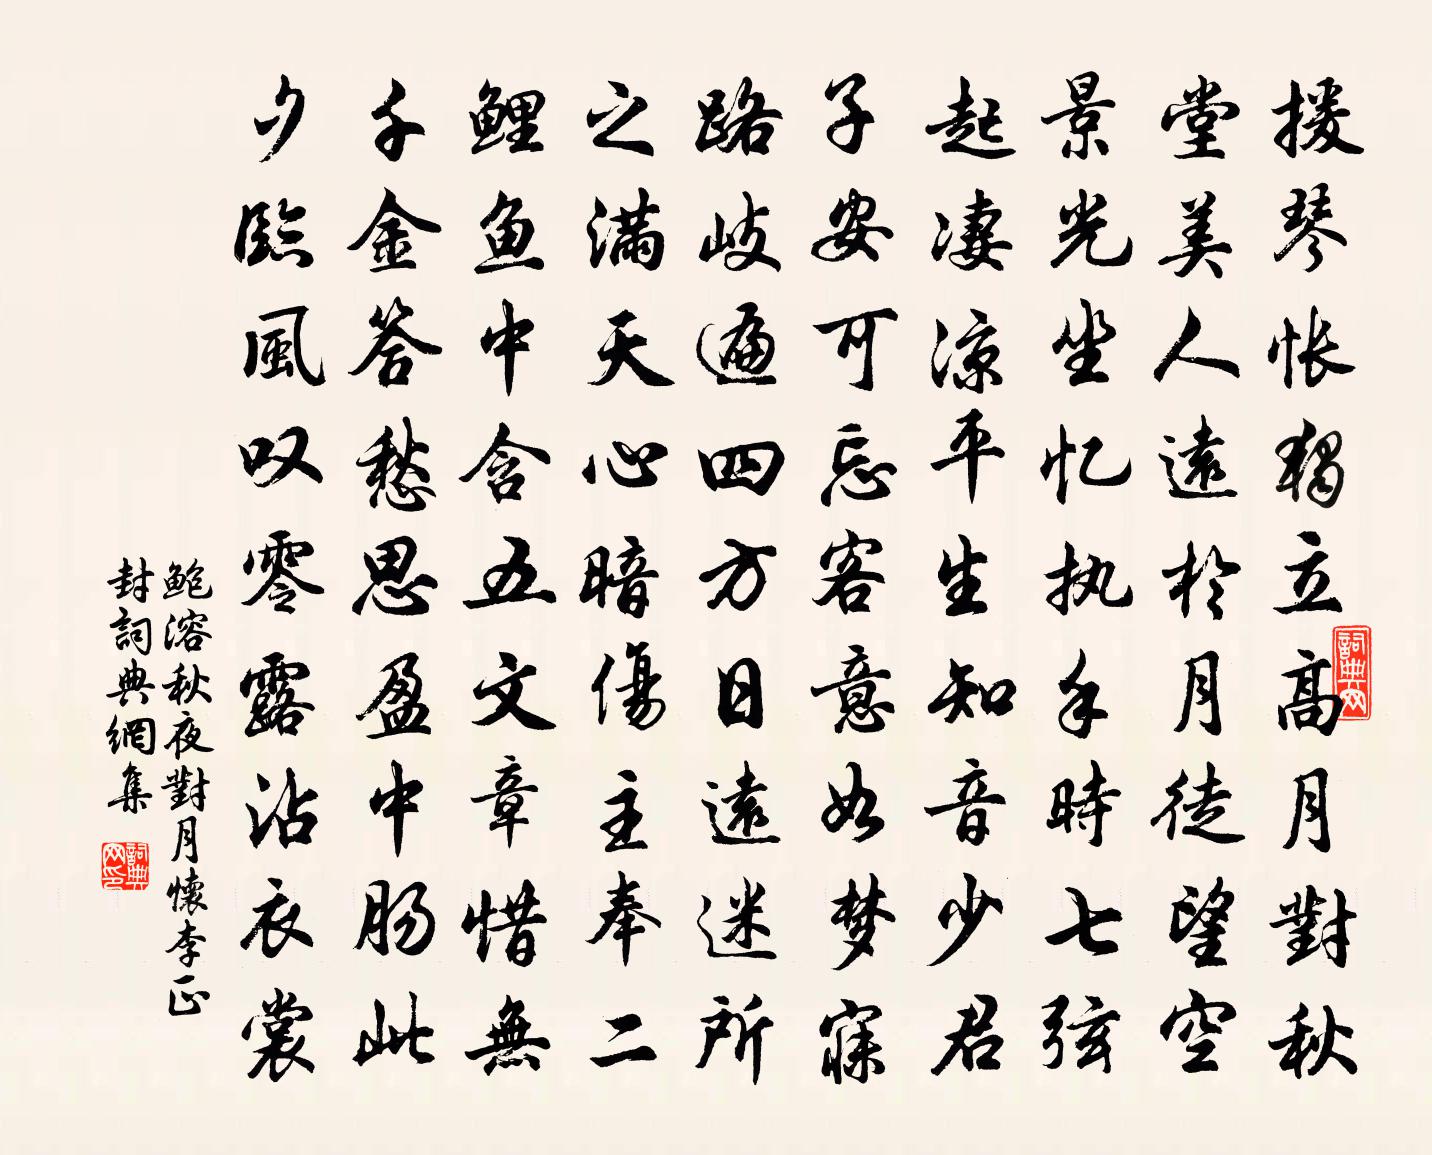 援琴怅獨立高月對秋
堂美人遠於月徒望空
景光坐忆执手時七弦
起凄凉平生知音少君
子安可忘客意如梦寐
路岐遍四方日遠迷所
之滿天心暗傷主奉二
鲤鱼中含五文章惜無
千金答愁思盈中肠此
夕臨風叹零露沾衣裳
鲍溶秋夜對月懷李正
封詞典網集
詞典网
詞典网印